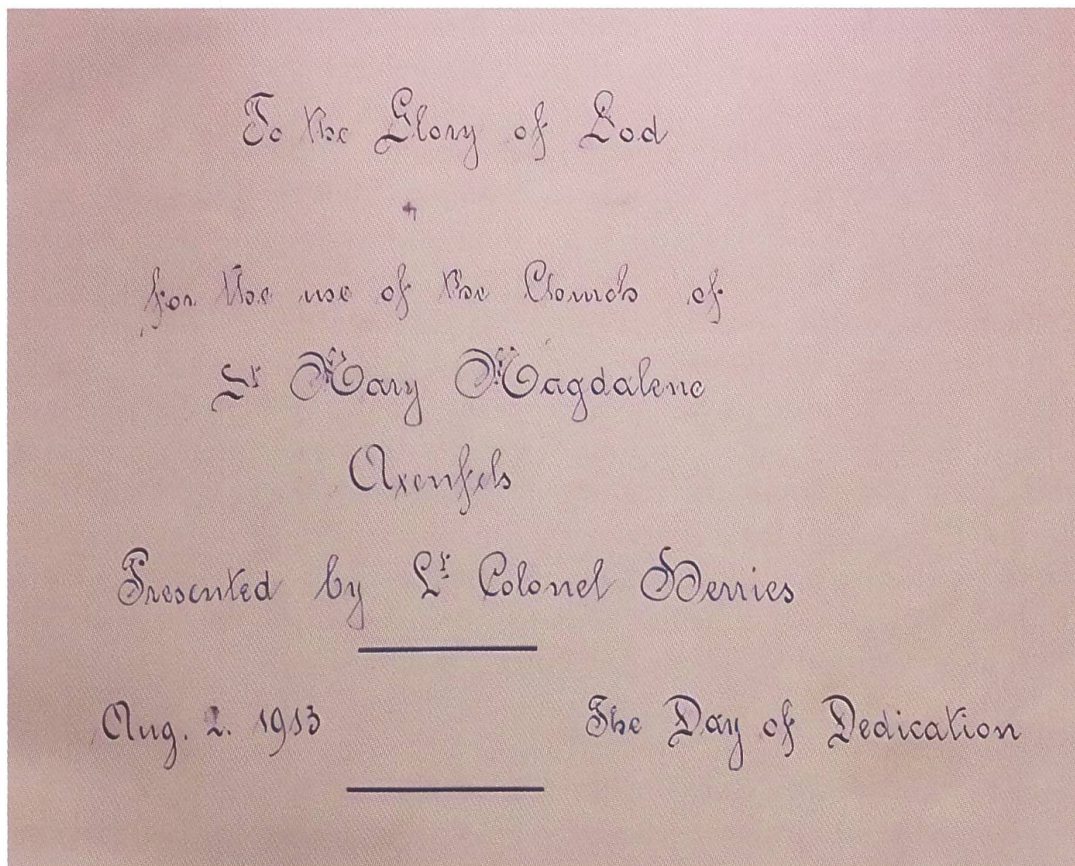 To the Glory of God
+
for the use of the Church of
St Mary Magdalene
Axenfels
Presented by Lt Colonel Herries
Aug. 2. 1913
The Day of Dedication